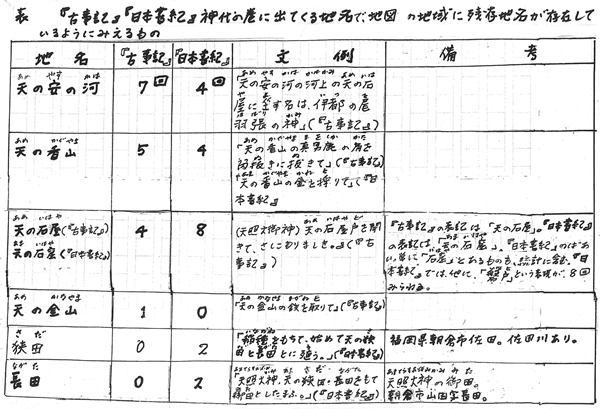 表 『古事記』『日本書紀』神代の巻に出てくる地名で、地図の地域に残存地名が存在して
いるようにみえるもの
地名 『古事記』 『日本書紀』 文例 備考
あめ やす かは
天の安の河 7回 4回
「天の安の河の河上の天の石
屋に坐す名は、伊都の尾
羽張の神」(『古事記』)
あめ かぐやま
天の香山 5 4
「天の香山の真男鹿の肩を
内抜きに抜きて」(『古事記』)
「天の香山の金を採りて」(『日
本書紀』)
あめ いはや
天の石屋(『古事記』)
あま いはや
天の石窟(『日本書紀』)
4 8
(天照大御神)天の石屋戸を開
きて、さしこもりましき。」(『古
事記』)
『古事記』の表記は「天の石屋」。『日本書紀』
の表記は、「天の石窟」。『日本書紀』のばあ
い、単に「石窟」とあるものも、統計に含む。『日
本書紀』では、他に、「磐戸」という表現が、8回
みられる。
あめ かなやま
天の金山 1 0
「天の金山の鉄を取りて」(『古事記』)
さだ
狭田 0 2
「稲種をもちて、始めて天の狭
田と長田とに殖う。」(『日本書紀』)
福岡県朝倉市佐田。佐田川あり。
ながた
長田 0 2
「天照大神、天の狭田・長田をもて
御田としたまふ。」(『日本書紀』)
天照大神の御田。
朝倉市山田字長田。